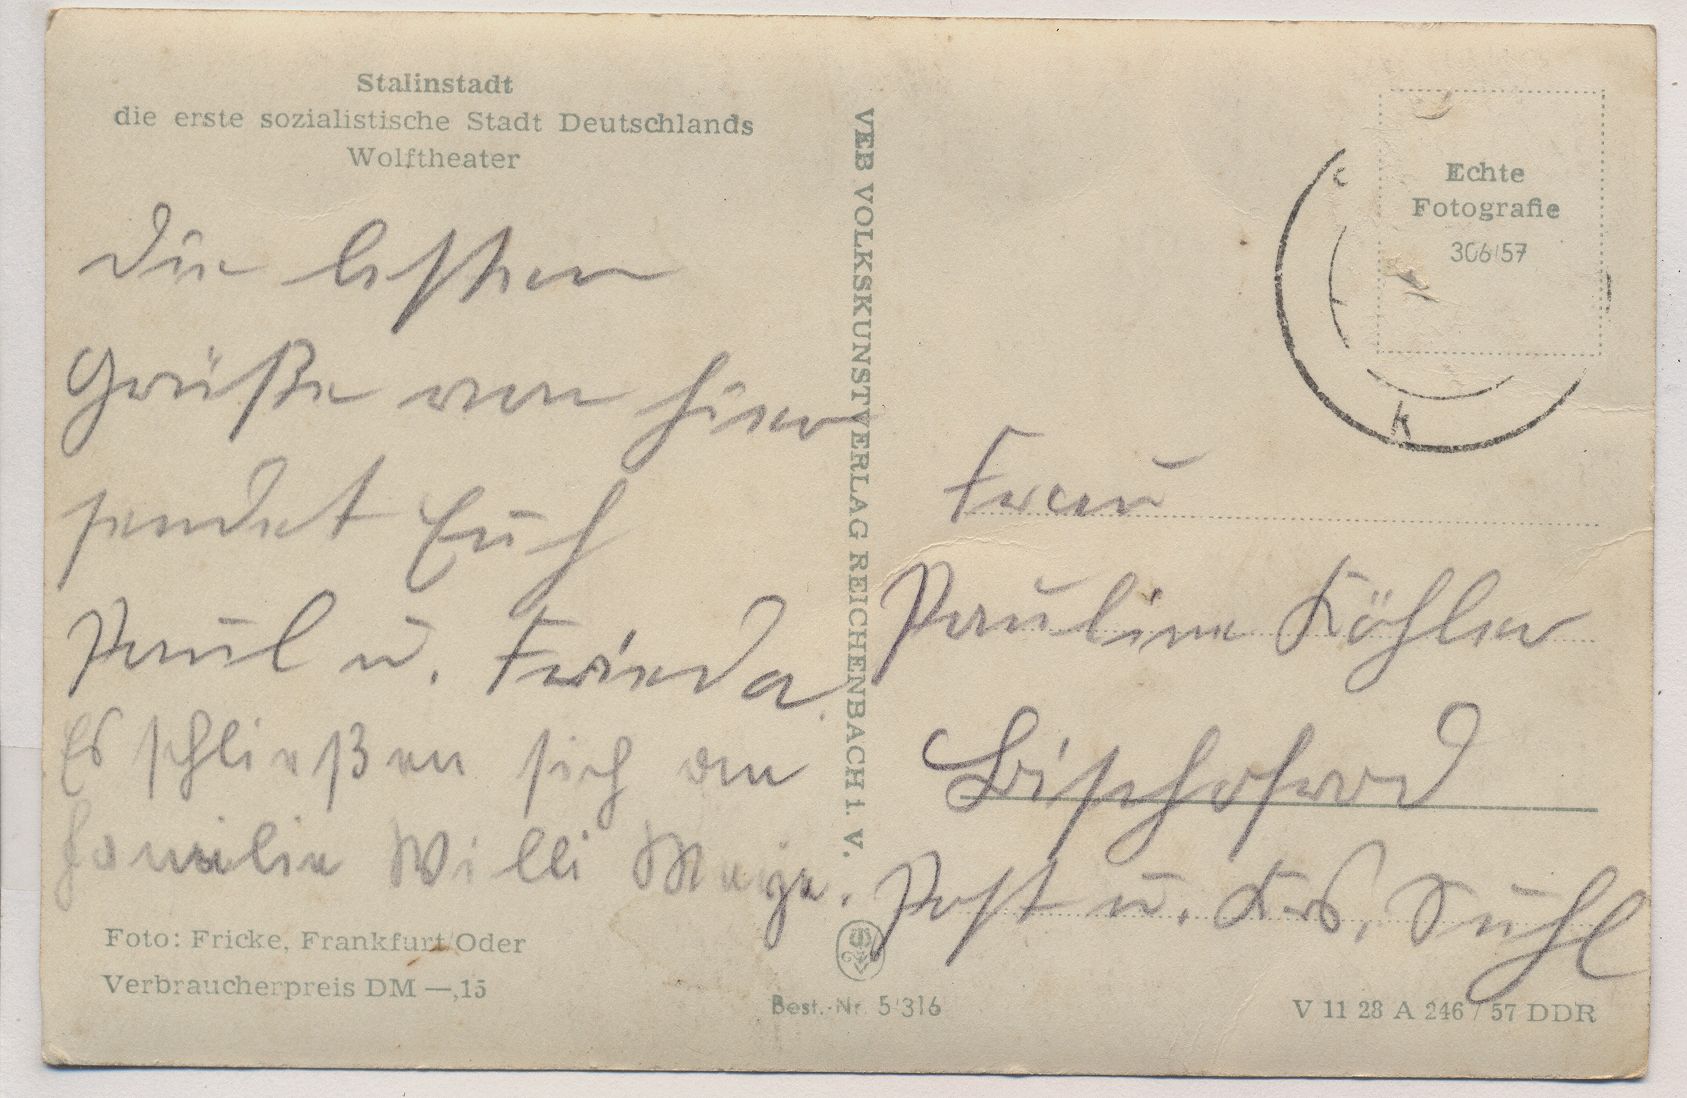 Stalinstadt
die erste sozialistische Stadt Deutschlands
Wolftheater
Die besten
Grüße von hier
sendet Euch
Paul u. Frieda
Es schließen sich an
Familie Willi
Foto: Fricke, Frankfurt/Oder
Verbraucherpreis DM —,15
VEB VOLKSKUNSTVERLAG REICHENBACH I. V.
Best.-Nr. 5/316
Echte
Fotografie
306/57
k
Frau
Pauline Köhler
Bischofrod
Post u. Krs. Suhl
V 11 28 A 246 / 57 DDR